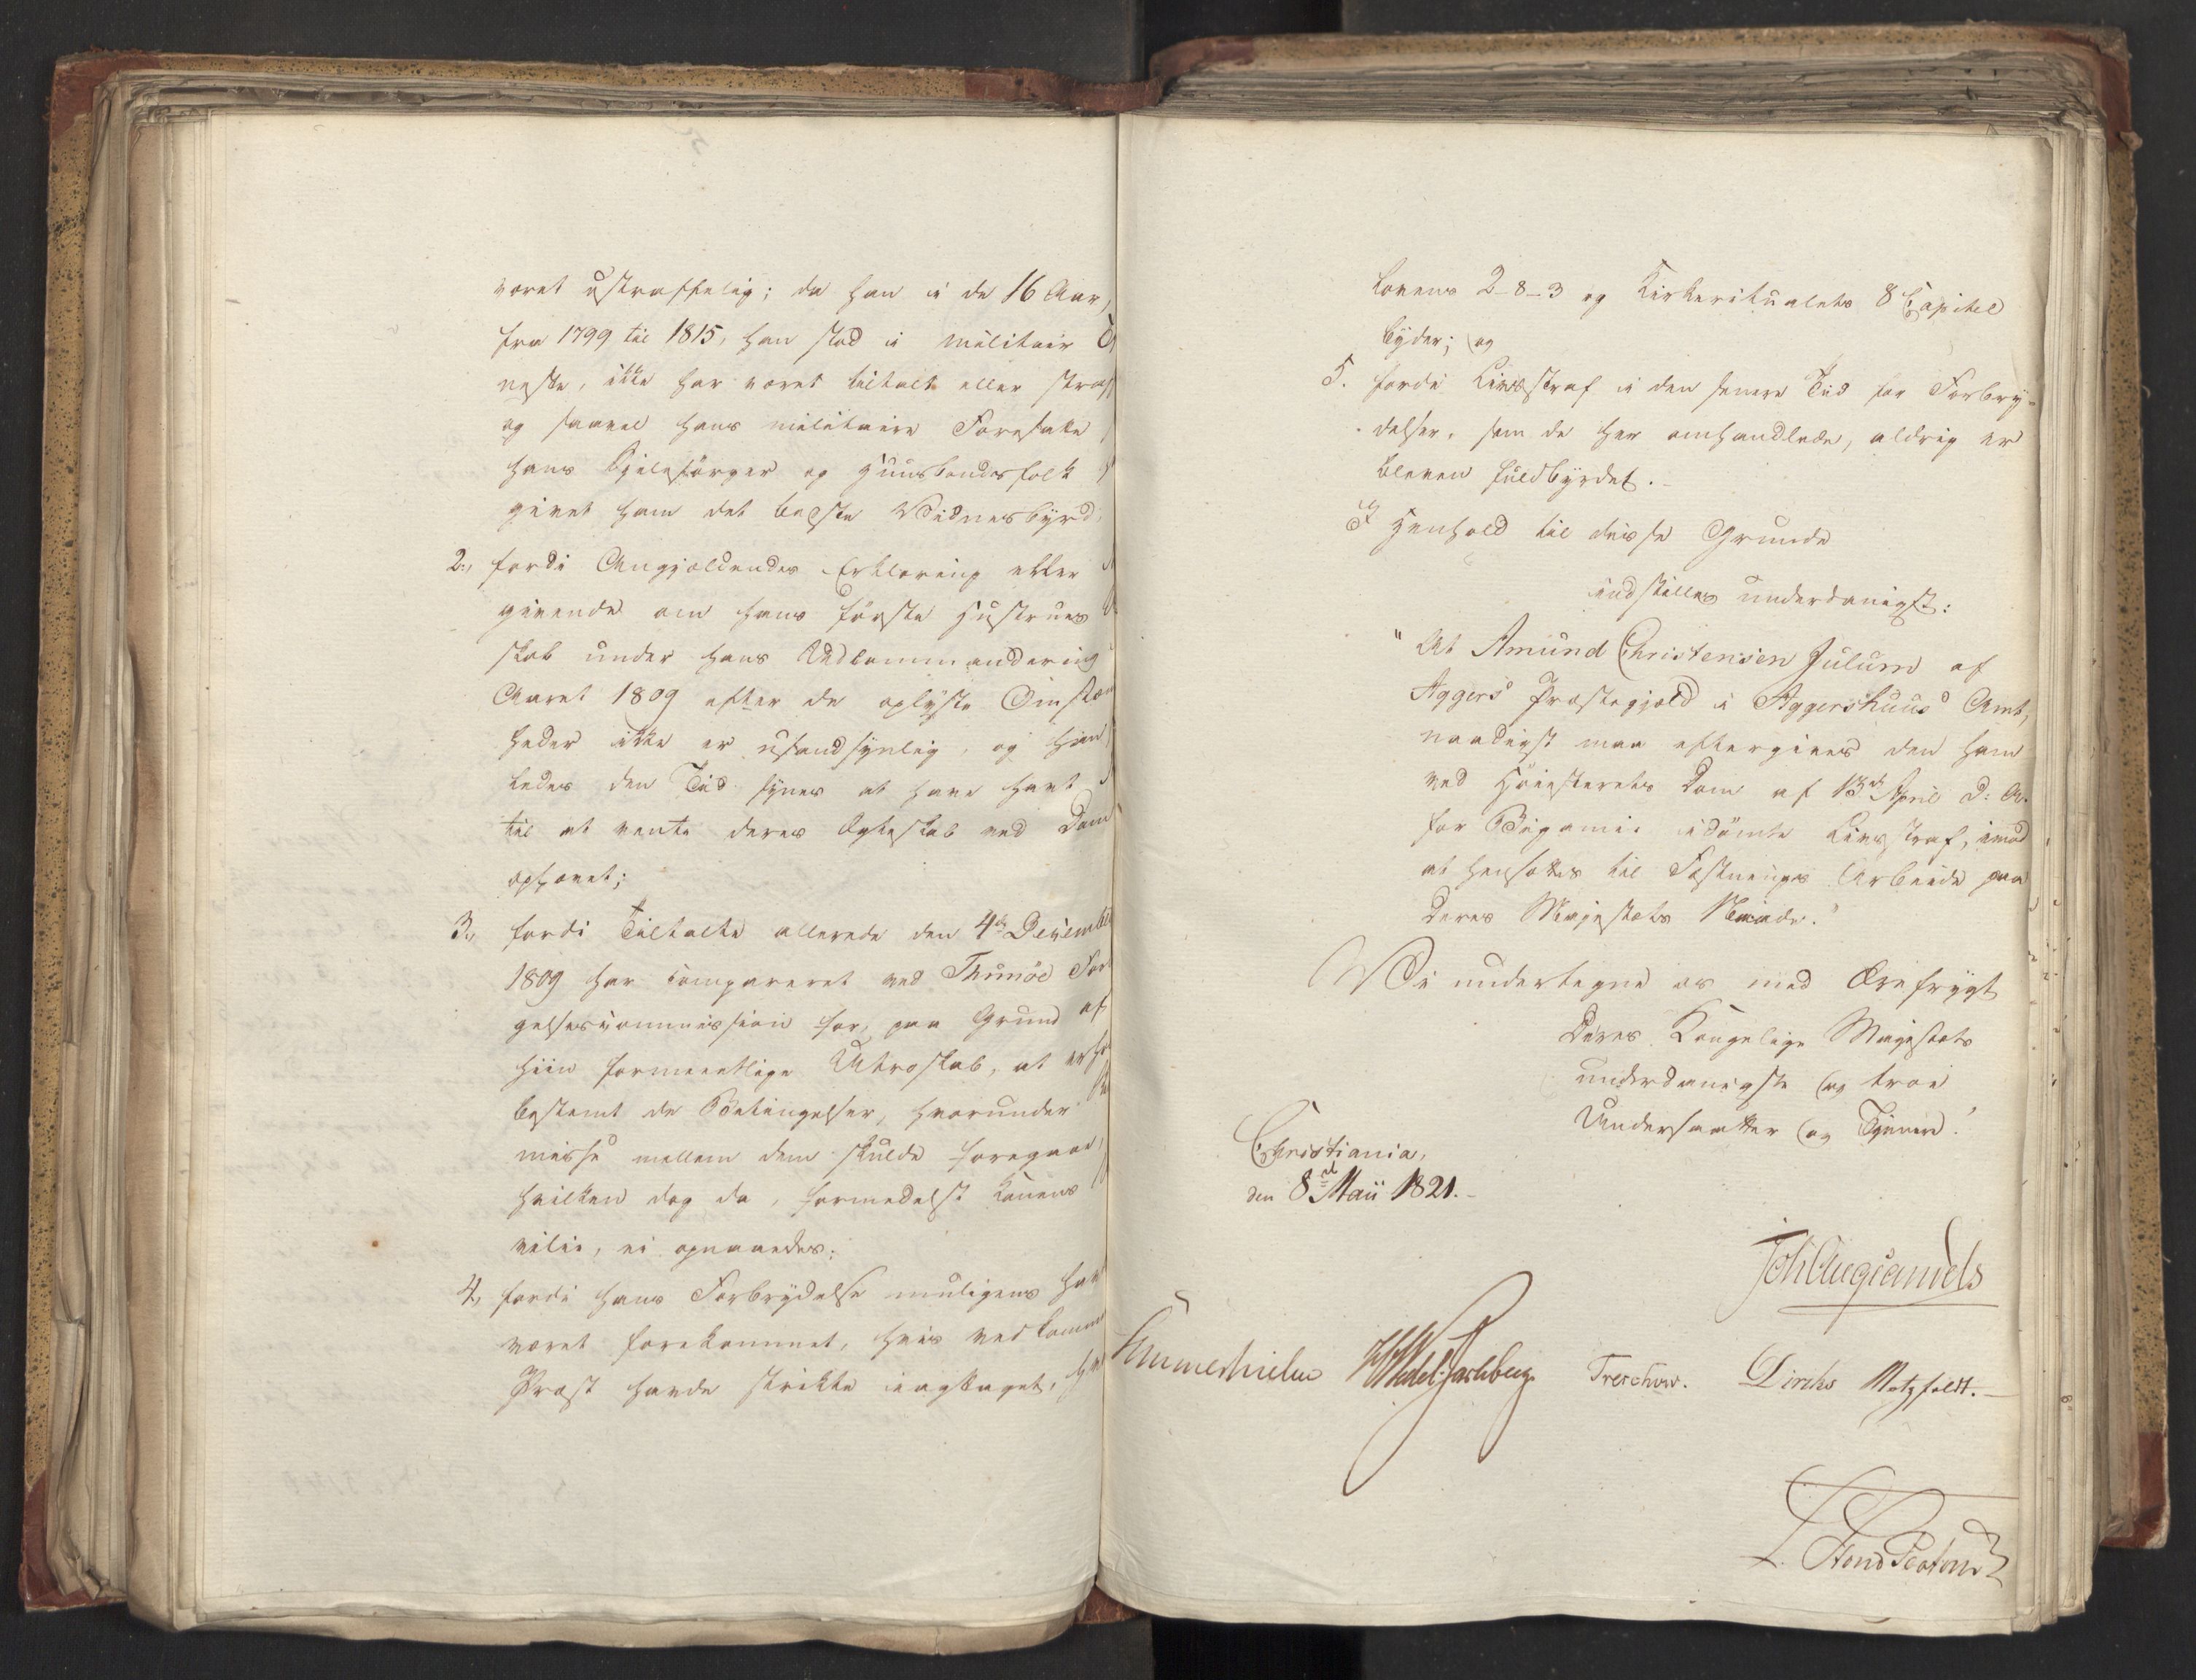 været ustraffelig; da han i de 16 Aar,
fra 1799 til 1815, han stod i militair
neste, ikke har været tiltalt eller straf
og saavel hans militaire Foresatte
hans Sjelesørger og Huusbondsfolk
givet ham det bedste Vidnesbyrd,
2., fordi Angjældendes Erklæring eller
givende om hans første Hustrues
skab under hans Udcommandering
Aaret 1809 efter de oplyste Omstæn
heder ikke er usandsynlig, og han
ledes den Tid synes at have havt
til at vente deres Egteskab ved Dom
ophævet;
3., fordi Tiltalte allerede den 4de December
1809 har compareret ved Thunøe For
gelsescommission for, paa Grund af
hiin formeentlige Utroskab, at erho
bestemt de Betingelser, hvorunder
misse mellem dem skulde foregaae,
hvilken dog da, formedelst Konens
vilie, ei opnaaedes;
4., fordi hans Forbrydelse muligens hav
været forekommet, hvis vedkomm
Præst havde strikte iagttaget, hv
Lovens 2-8-3 og Kirkeritualets 8 Capitel
byder; og
5. fordi Livsstraf i den senere Tid for Forbry-
delser, som de her omhandlede, aldrig er
bleven fuldbyrdet.
I Henhold til disse Grunde
indstilles underdanigst:
"At Amund Christensen Julum af
Aggers Præstegjæld i Aggershuus Amt,
naadigst maa eftergives den ham
ved Høiesterets Dom af 13de April d: A.
for Bigamie idømte Livsstraf, imod
at hensættes til Fæstnings Arbeide paa
Deres Majestæts Naade."
Vi undertegne os med Ærefrygt
Deres Kongelige Majestæts
underdanigste og troe
Undersaatter og Tjenere.
Christiania,
den 8de Maii 1821.
Joh Aug Sandels
Sommerhielm HWedel Jarlsberg Treschow. Diriks Motzfeldt.